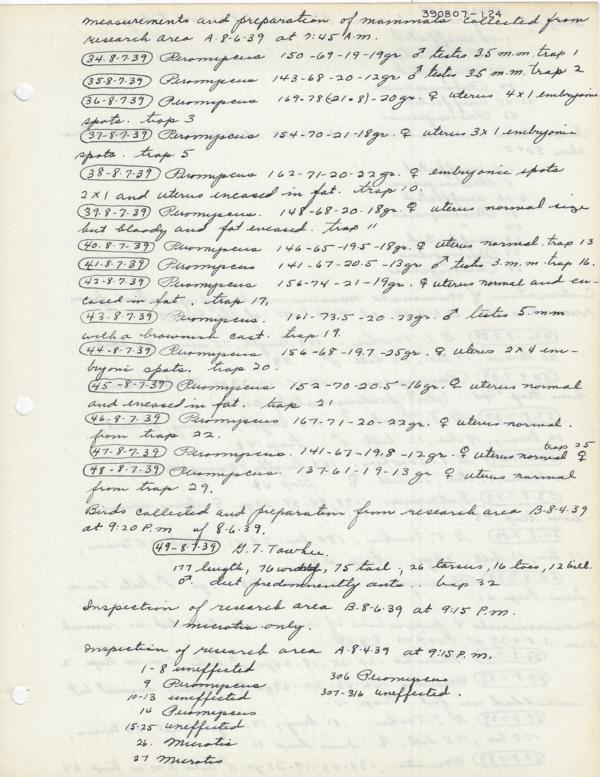 390807-124
measurements and preparation of mammals collected from
research area A-8-6-39 at 7:45 A.M.
34-8-7-39 Peromyscus 150-69-19-19gr ♂ testis 3.5 m.m. trap 1
35-8-7-39 Peromyscus 143-68-20-12gr ♂ testis 3.5 m.m. trap 2
36-8-7-39 Peromyscus 169-78(21.8)-20gr. ♀ uterus 4x1 embryonic
spots. trap 3
37-8-7-39 Peromyscus 154-70-21-18gr. ♀ uterus 3x1 embryonic
spots. trap 5
38-8-7-39 Peromyscus 162-71-20-22gr. ♀ embryonic spots
2x1 and uterus encased in fat. trap 10.
39-8-7-39 Peromyscus. 148-68-20-18gr. ♀ uterus normal size
but bloody and fat encased. trap 11
40-8-7-39 Peromyscus 146-65-19.5-18gr. ♀ uterus normal. trap 13
41-8-7-39 Peromyscus 141-67-20.5-13gr ♂ testis 3. m.m. trap 16.
42-8-7-39 Peromyscus 156-74-21-19gr. ♀ uterus normal and en-
cased in fat. trap 17.
43-8-7-39 Peromyscus. 161-73.5-20-23gr. ♂ testis 5. mm
with a brownish cast. trap 19.
44-8-7-39 Peromyscus 156-68-19.7-25gr. ♀ uterus 2x4 em-
bryoni spots. trap 20.
45-8-7-39 Peromyscus 152-70-20.5-16gr. ♀ uterus normal
and encased in fat. trap 21
46-8-7-39 Peromyscus 167-71-20-22gr. ♀ uterus normal.
from trap 22.
47-8-7-39 Peromyscus. 141-67-19.8-12gr. ♀ uterus normal ♀ trap 25
48-8-7-39 Peromyscus. 137-61-19-13gr ♀ uterus normal
from trap 29.
Birds collected and preparation from research area B-8-4-39
at 9:20 P.m of 8-6-39.
49-8-7-39 G.T. Towhee.
177 length, 76 39, 75 tail, 26 tarsus, 16 toes, 12 bill.
♂. diet predominently ants.. trap 32
Inspection of research area B-8-6-39 at 9:15 P.m.
1 microtis only.
Inspection of research area A-8-4-39 at 9:15 P.m.
1-8 uneffected
9 Peromyscus
10-13 uneffected
14 Peromyscus
15-25 uneffected
26. Microtis
27 Microtis
306 Peromyscus
307-316 uneffected.